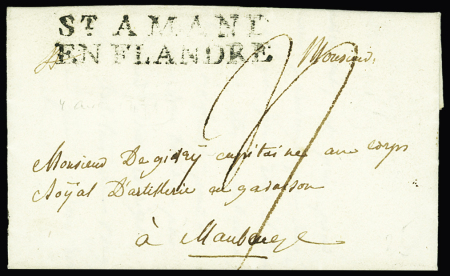 ST AMANT
EN FLANDRE
Monsieur
Monsieur De capitaine aux corps
Royal D'artillerie en garnison
à Maubeuge